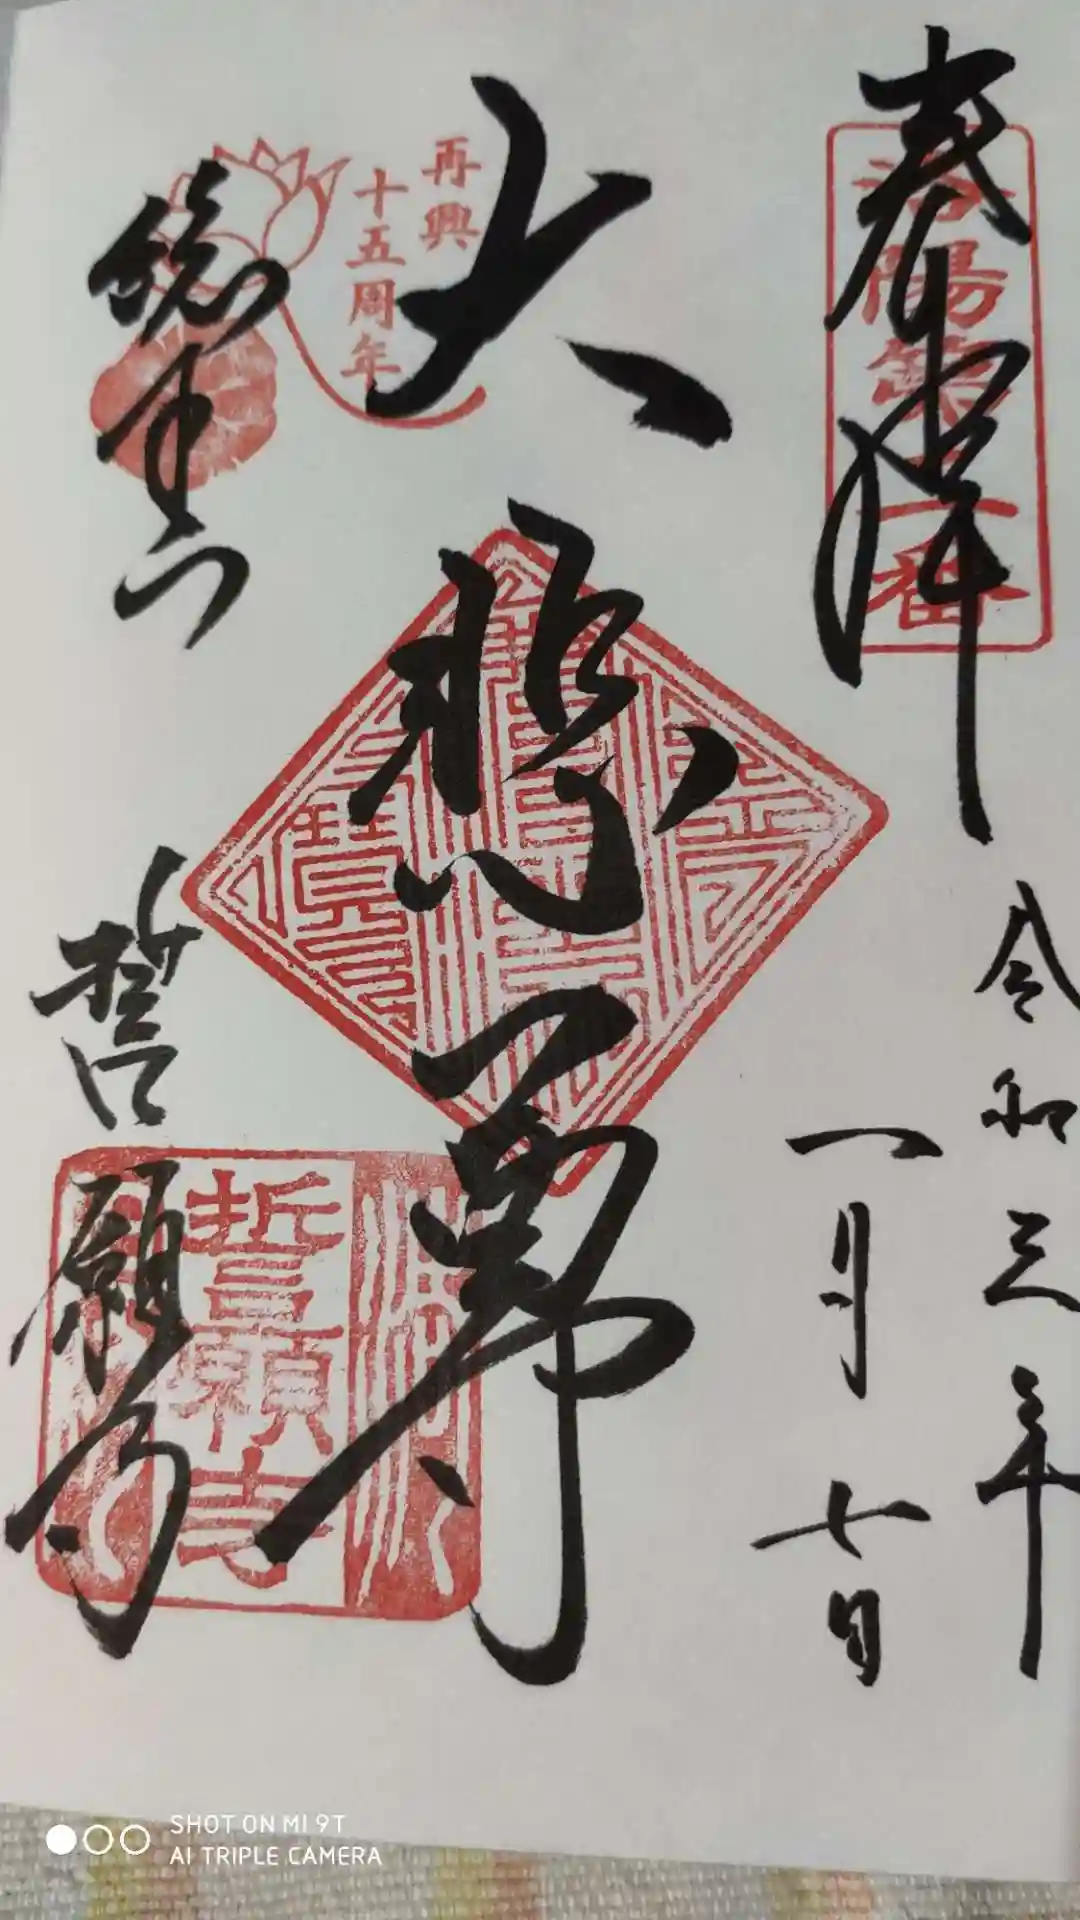 奉拝
洛陽第二番
令和三年
一月七日
大悲殿
再興
十五周年
総本山
誓願寺
誓願寺
SHOT ON MI 9T
AI TRIPLE CAMERA